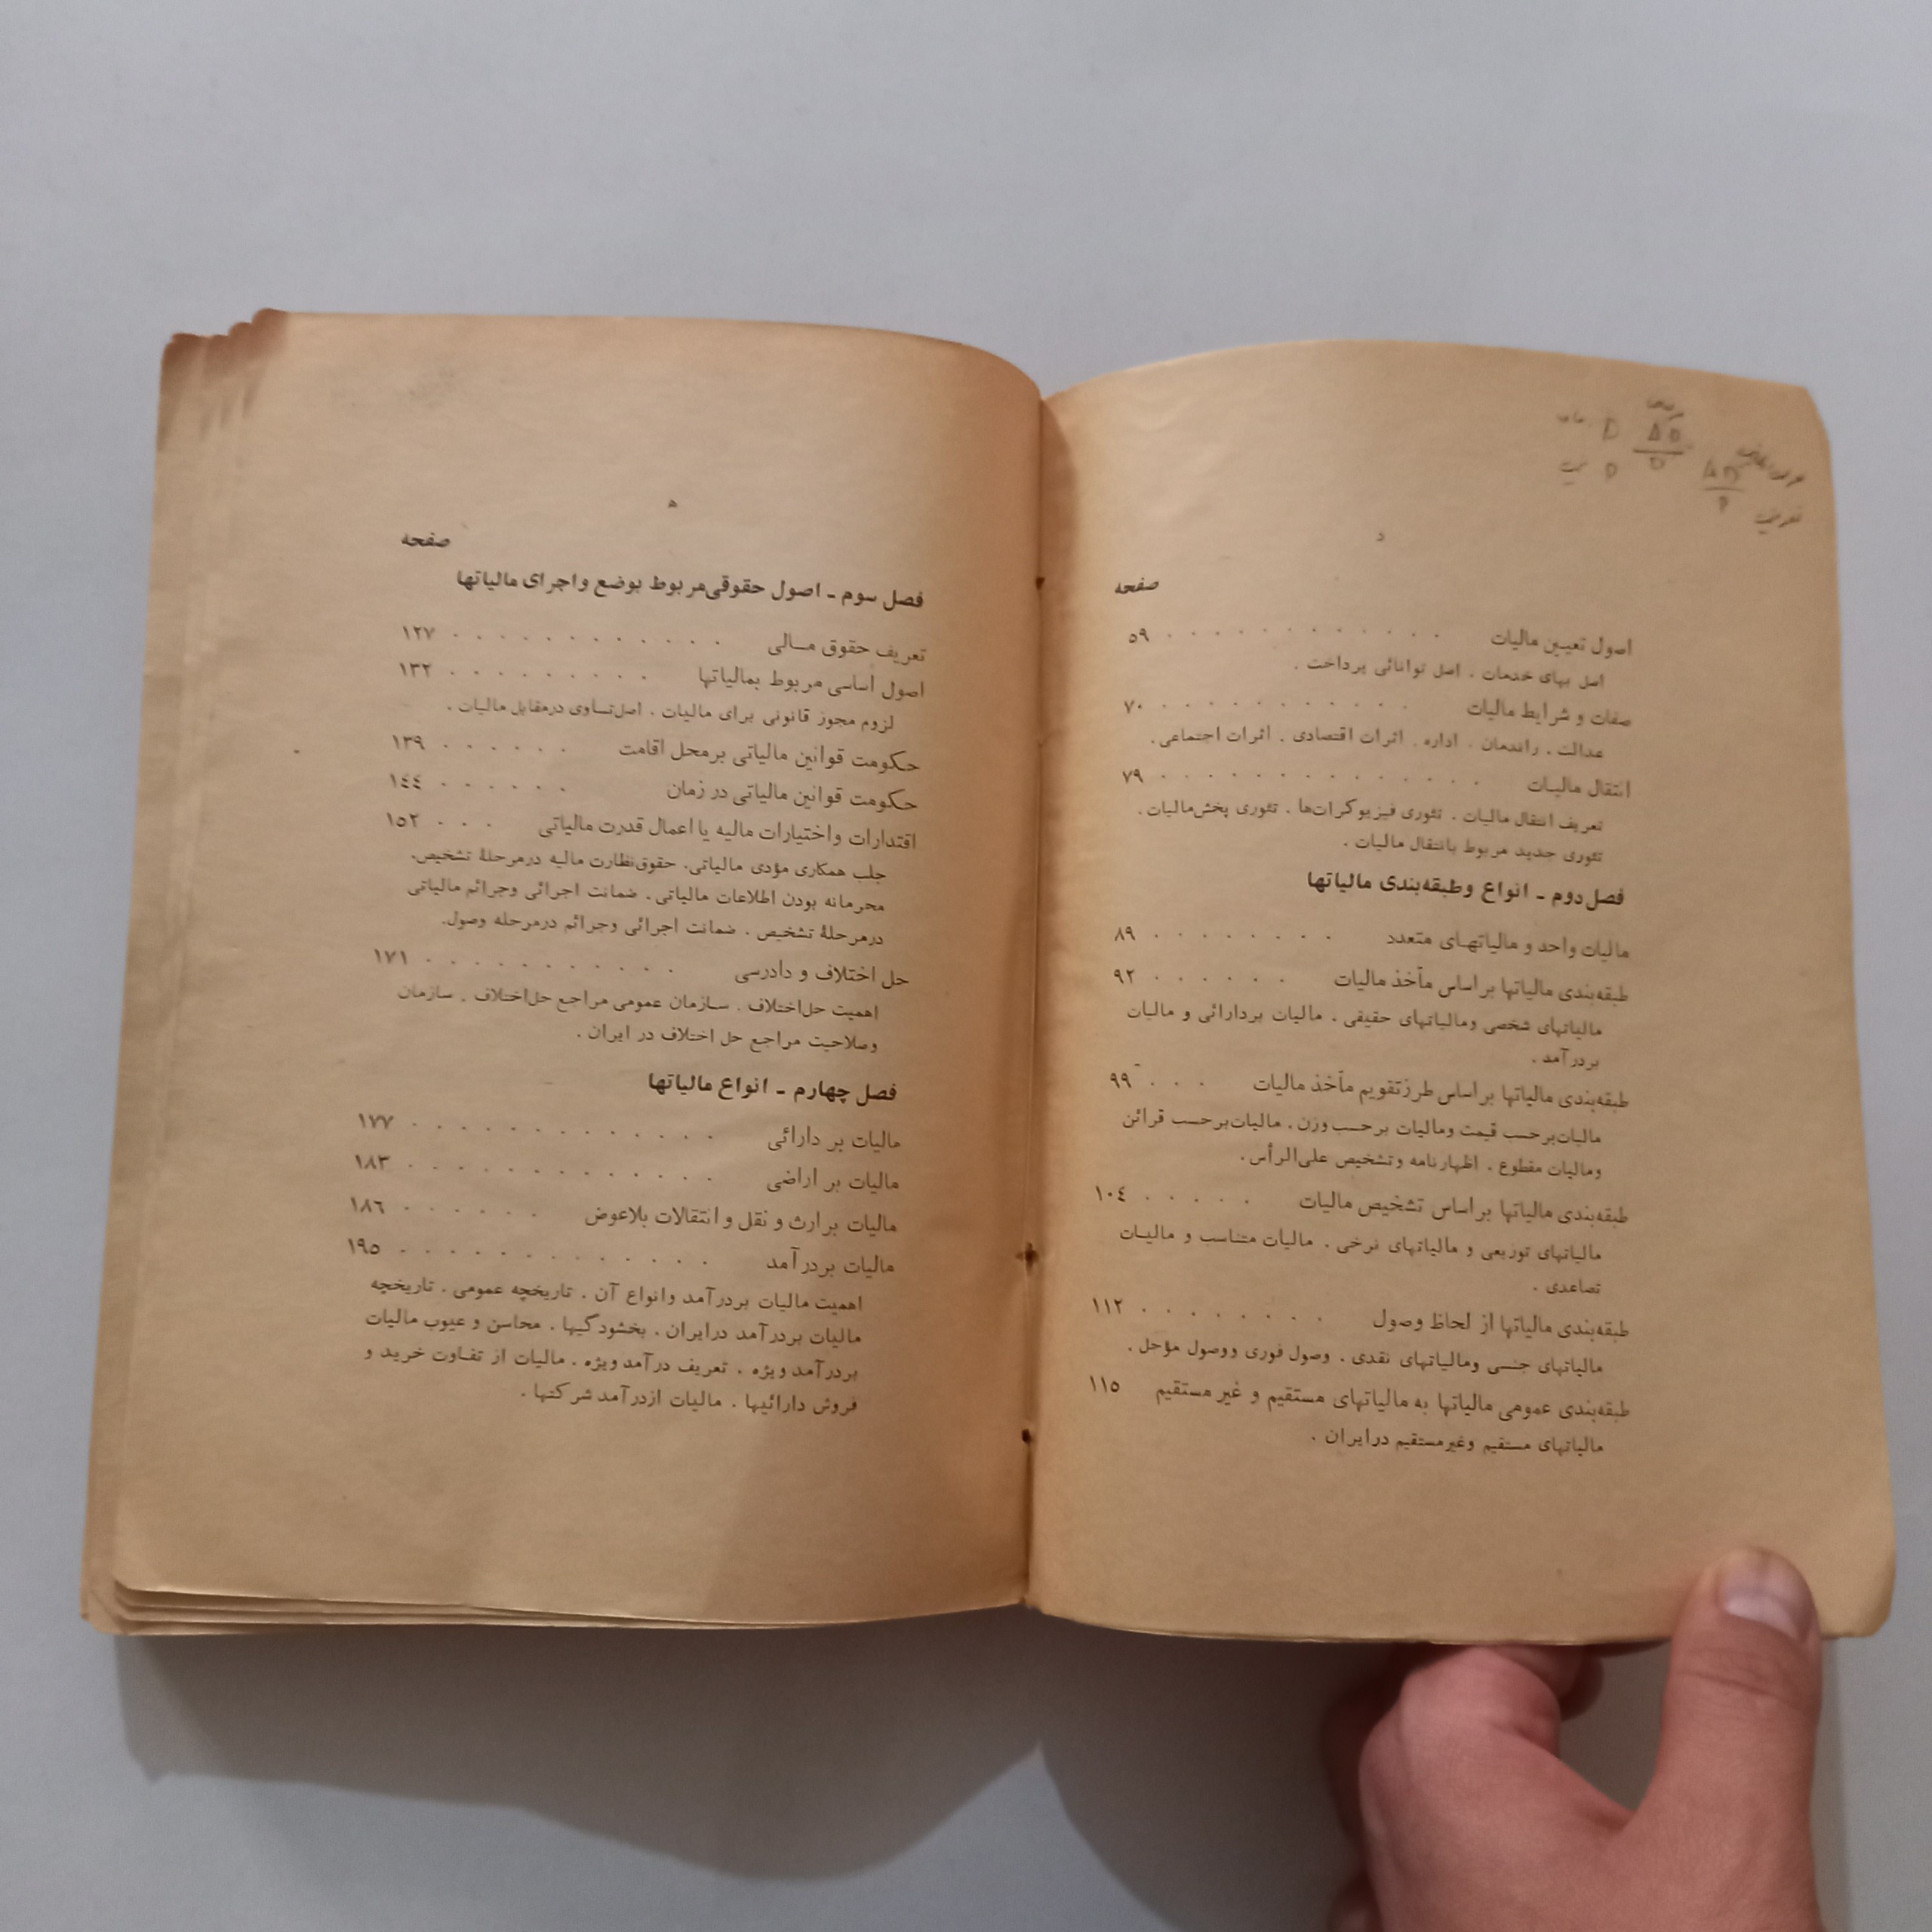 د
صفحه
اصول تعیین مالیات . . . . . . . . . . . . ۵۹
اصل بهای خدمات . اصل توانائی پرداخت .
صفات و شرایط مالیات . . . . . . . . . . . ۷۰
عدالت . راندمان . اداره . اثرات اقتصادی . اثرات اجتماعی .
انتقال مالیات . . . . . . . . . . . . . . ۷۹
تعریف انتقال مالیات . تئوری فیزیوکرات‌ها . تئوری پخش‌مالیات .
تئوری جدید مربوط بانتقال مالیات .
فصل دوم ـ انواع وطبقه‌بندی مالیاتها
مالیات واحد و مالیاتهای متعدد . . . . . . . . ۸۹
طبقه‌بندی مالیاتها براساس مأخذ مالیات . . . . . . ۹۲
مالیاتهای شخصی ومالیاتهای حقیقی . مالیات بردارائی و مالیات
بردرآمد .
طبقه‌بندی مالیاتها براساس طرزتقویم مأخذ مالیات . . . ۹۹
مالیات‌برحسب قیمت ومالیات برحسب وزن . مالیات‌برحسب قرائن
ومالیات مقطوع . اظهارنامه وتشخیص علی‌الرأس .
طبقه‌بندی مالیاتها براساس تشخیص مالیات . . . . . ۱۰٤
مالیاتهای توزیعی و مالیاتهای نرخی . مالیات متناسب و مالیات
تصاعدی .
طبقه‌بندی مالیاتها از لحاظ وصول . . . . . . . . ۱۱۲
مالیاتهای جنسی ومالیاتهای نقدی . وصول فوری ووصول مؤجل .
طبقه‌بندی عمومی مالیاتها به مالیاتهای مستقیم و غیر مستقیم ۱۱۵
مالیاتهای مستقیم وغیرمستقیم درایران .
ه
صفحه
فصل سوم ـ اصول حقوقی‌مربوط بوضع واجرای مالیاتها
تعریف حقوق مالی . . . . . . . . . . . . ۱۲۷
اصول اساسی مربوط بمالیاتها . . . . . . . . . ۱۳۲
لزوم مجوز قانونی برای مالیات . اصل‌تساوی درمقابل مالیات .
حکومت قوانین مالیاتی برمحل اقامت . . . . . . ۱۳۹
حکومت قوانین مالیاتی در زمان . . . . . . ۱٤٤
اقتدارات واختیارات مالیه یا اعمال قدرت مالیاتی . . . ۱۵۲
جلب همکاری مؤدی مالیاتی. حقوق‌نظارت مالیه درمرحلهٔ تشخیص.
محرمانه بودن اطلاعات مالیاتی . ضمانت اجرائی وجرائم مالیاتی
درمرحلهٔ تشخیص . ضمانت اجرائی وجرائم درمرحله وصول.
حل اختلاف و دادرسی . . . . . . . . . . . ۱۷۱
اهمیت حل‌اختلاف . سازمان عمومی مراجع حل‌اختلاف . سازمان
وصلاحیت مراجع حل اختلاف در ایران .
فصل چهارم ـ انواع مالیاتها
مالیات بر دارائی . . . . . . . . . . . . . ۱۷۷
مالیات بر اراضی . . . . . . . . . . . . . ۱۸۳
مالیات برارث و نقل و انتقالات بلاعوض . . . . . . ۱۸٦
مالیات بردرآمد . . . . . . . . . . . . . ۱۹۵
اهمیت مالیات بردرآمد وانواع آن . تاریخچه عمومی . تاریخچه
مالیات بردرآمد درایران . بخشودگیها . محاسن و عیوب مالیات
بردرآمد ویژه . تعریف درآمد ویژه . مالیات از تفاوت خرید و
فروش دارائیها . مالیات ازدرآمد شرکتها .